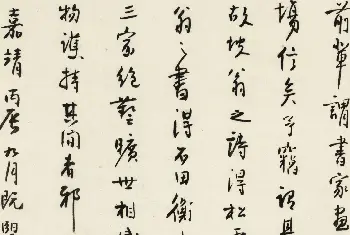 前輩謂書家畫
場信矣予竊謂
故坡翁之詩得松
翁之書得石田衡
三家絕藝曠世相
物謙持其間者邪
嘉靖丙辰九月既望